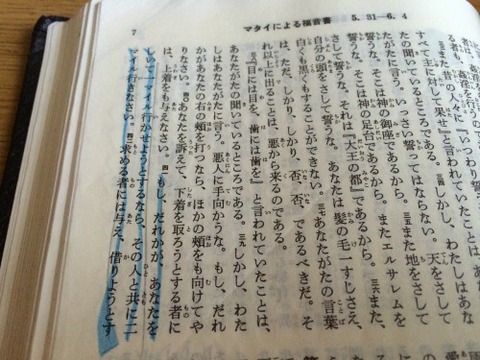 マタイによる福音書　5. 31―6. 4
7
る者も、姦淫を行うの
た昔の人々に『いつわり誓う
すべて主に対して果せ』と言われていたことは、
たの聞いているところである。三四しかし、わたしはあな
たがたに言う。いっさい誓ってはならない。天をさして
誓うな。そこは神の御座であるから。三五また地をさして
誓うな。そこは神の足台であるから。またエルサレムを
さして誓うな。それは『大王の都』であるから。三六また、
自分の頭をさして誓うな。あなたは髪の毛一すじさえ、
白くも黒くもすることができない。三七あなたがたの言葉
は、ただ、しかり、しかり、否、否、であるべきだ。そ
れ以上に出ることは、悪から来るのである。
三八『目には目を、歯には歯を』と言われていたことは、
あなたがたの聞いているところである。三九しかし、わた
しはあなたがたに言う。悪人に手向かうな。もし、だれ
かがあなたの右の頬を打つなら、ほかの頬をも向けてや
りなさい。四〇あなたを訴えて、下着を取ろうとする者に
は、上着をも与えなさい。四一もし、だれかが、あなたを
しいて一マイル行かせようとするなら、その人と共に二
マイル行きなさい。四二求める者には与え、借りようとす